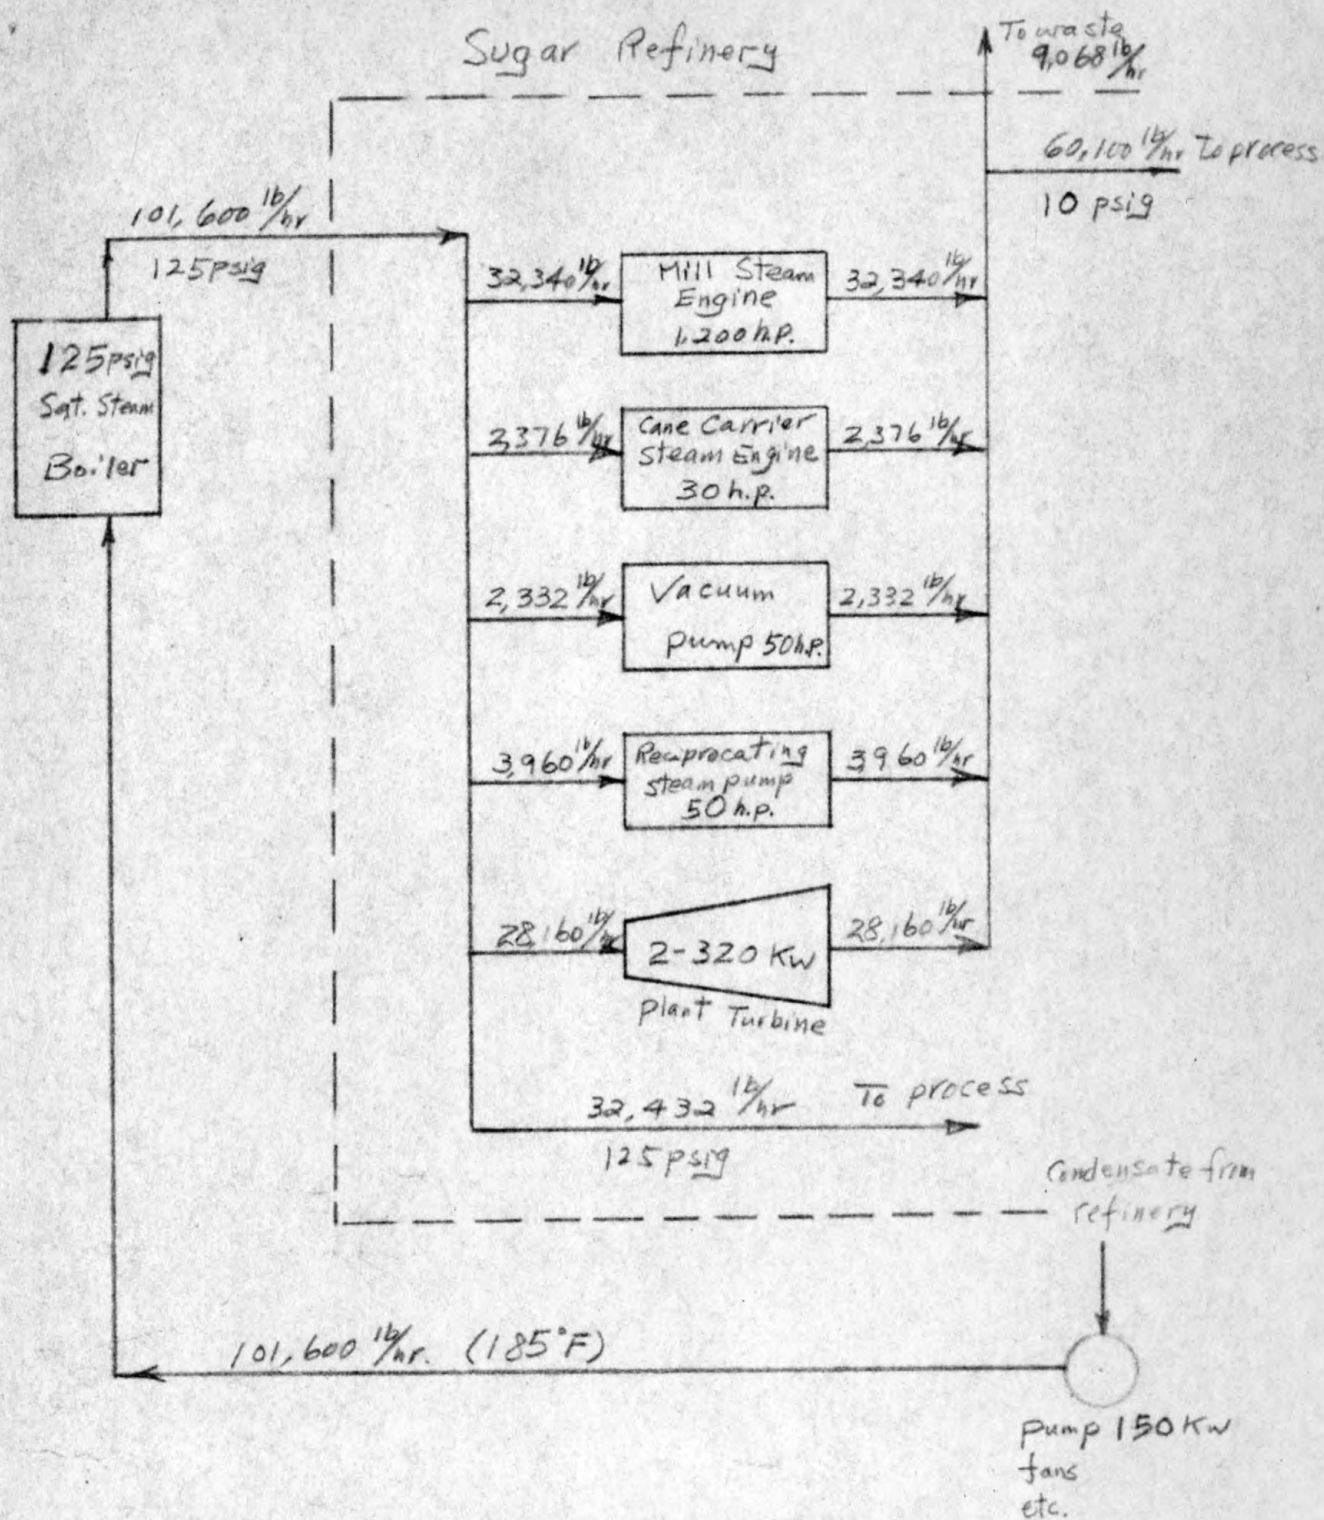 Sugar Refinery
To waste
9,068 lb/hr
60,100 lb/hr to process
10 psig
101,600 lb/hr
125psig
125psig
Sat. Steam
Boiler
32,340 lb/hr
Mill Steam
Engine
1,200 h.p.
32,340 lb/hr
2,376 lb/hr
Cane Carrier
Steam Engine
30 h.p.
2,376 lb/hr
2,332 lb/hr
Vacuum
pump 50h.p.
2,332 lb/hr
3,960 lb/hr
Reciprocating
steam pump
50 h.p.
3,960 lb/hr
28,160 lb/hr
2-320 Kw
28,160 lb/hr
plant Turbine
32,432 lb/hr To process
125 psig
Condensate from
refinery
101,600 lb/hr. (185°F)
pump 150 Kw
fans
etc.